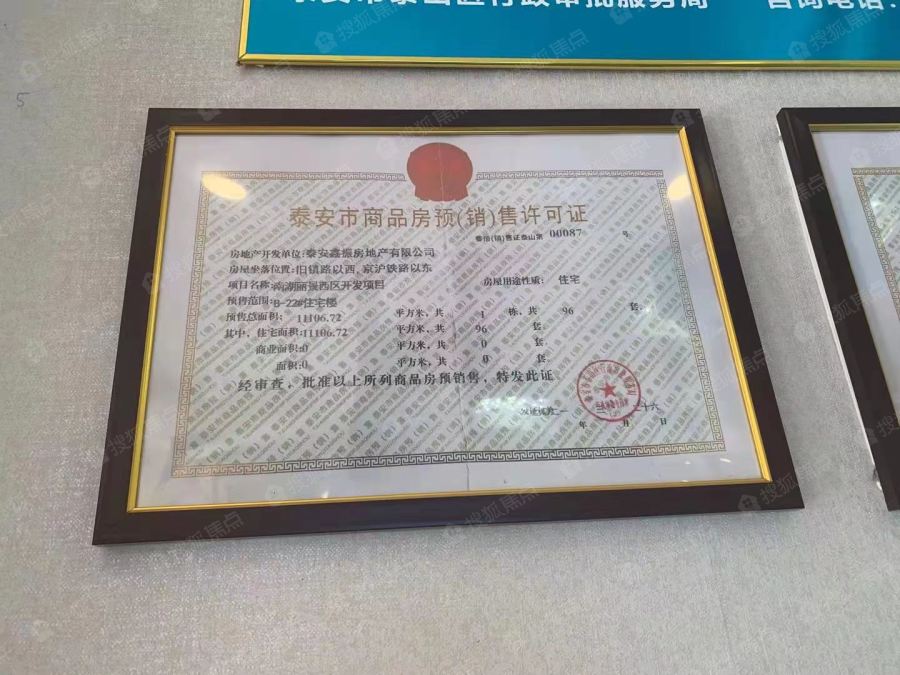 泰安市泰山区行政审批服务局 咨询电话:
泰安市商品房预(销)售许可证
泰预(销)售证泰山第 00087 号
房地产开发单位:泰安鑫振房地产有限公司
房屋坐落位置:旧镇路以西,京沪铁路以东
项目名称:南湖丽景西区开发项目 房屋用途性质: 住宅
预售范围:B-22#住宅楼
预售总面积: 11106.72 平方米,共 1 栋,共 96 套。
其中,住宅面积:11106.72 平方米,共 96 套。
商业面积:0 平方米,共 0 套。
面积:0 平方米,共 0 套。
经审查,批准以上所列商品房预销售,特发此证。
发证机关:
二十六
年 月 日
搜狐焦点